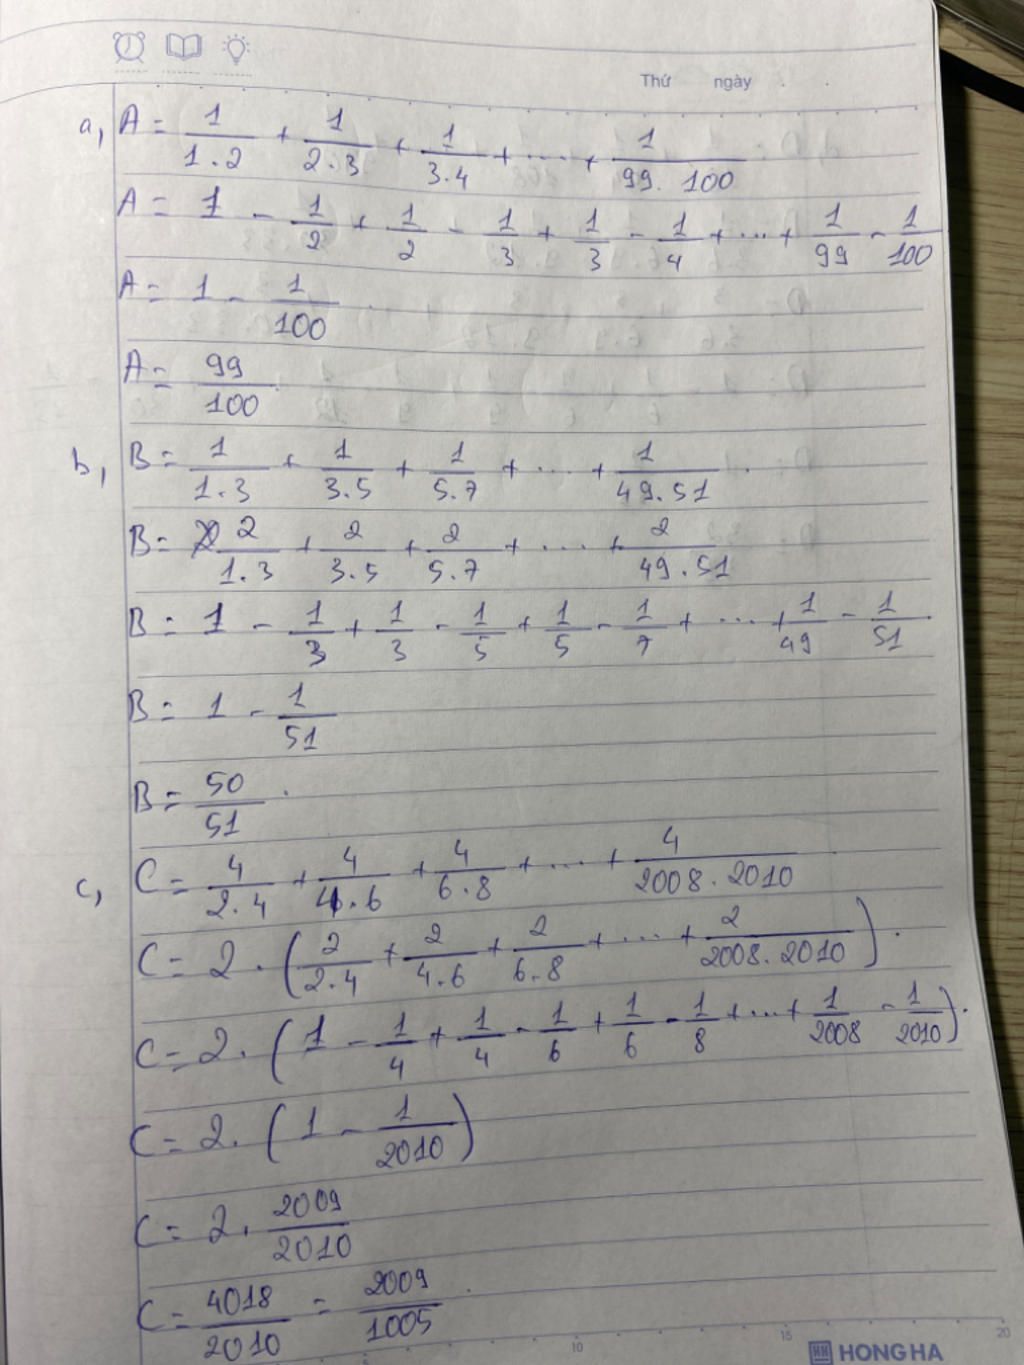 Thứ ngày
a, A = 1/1.2 + 1/2.3 + 1/3.4 + ... + 1/99.100
A = 1 - 1/2 + 1/2 - 1/3 + 1/3 - 1/4 + ... + 1/99 - 1/100
A = 1 - 1/100
A = 99/100
b, B = 1/1.3 + 1/3.5 + 1/5.7 + ... + 1/49.51
B = 2/1.3 + 2/3.5 + 2/5.7 + ... + 2/49.51
B = 1 - 1/3 + 1/3 - 1/5 + 1/5 - 1/7 + ... + 1/49 - 1/51
B = 1 - 1/51
B = 50/51
c, C = 4/2.4 + 4/4.6 + 4/6.8 + ... + 4/2008.2010
C = 2 . (2/2.4 + 2/4.6 + 2/6.8 + ... + 2/2008.2010)
C = 2 . (1 - 1/4 + 1/4 - 1/6 + 1/6 - 1/8 + ... + 1/2008 - 1/2010)
C = 2 . (1 - 1/2010)
C = 2 . 2009/2010
C = 4018/2010 = 2009/1005
5 10 15 20
HONG HA